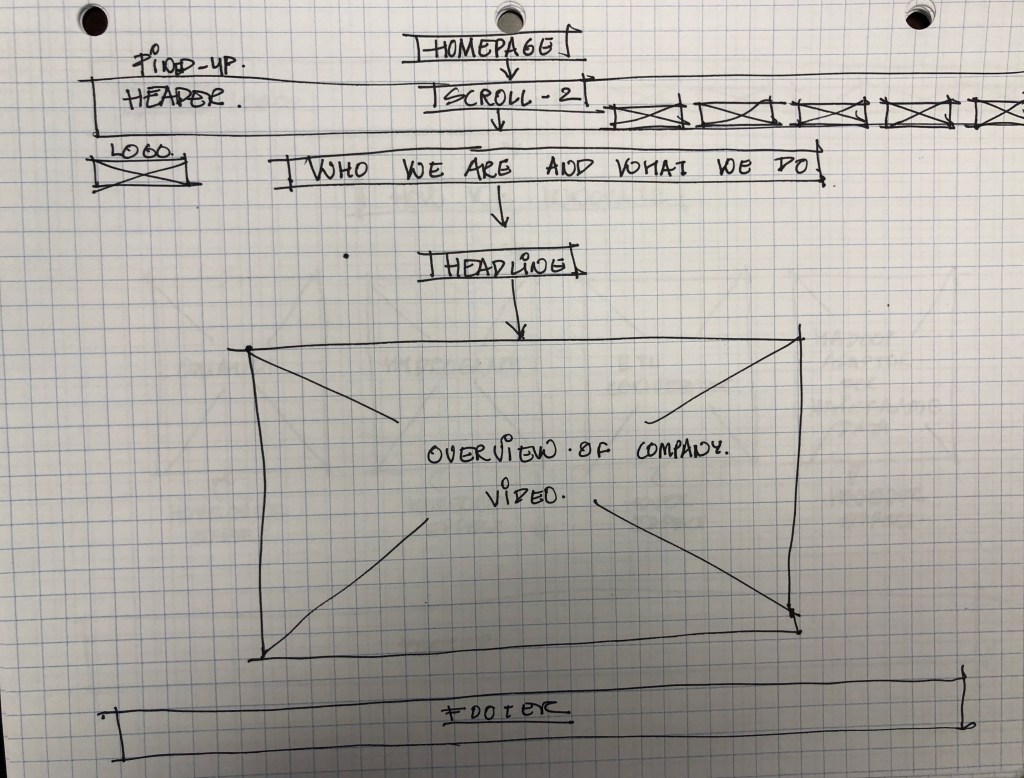 HOMEPAGE
PINED-UP.
HEADER.
SCROLL-2
LOGO.
WHO WE ARE AND WHAT WE DO
HEADLINE
OVERVIEW.OF COMPANY.
VIDEO.
FOOTER